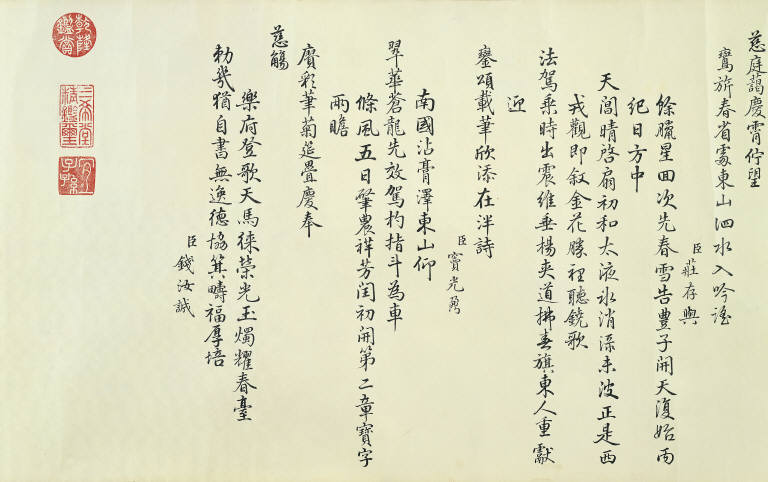 慈庭藹慶霄佇望
鸞旂春省處東山泗水入吟謠
臣莊存與
餘臘星回次先春雪告豐子開天復始丙
紀日方中
天閶晴啓扇初和太液氷消漾素波正是西
戎觀即叙金花牓裡聽鐃歌
法駕乘時出震維垂楊夾道拂春旗東人重獻
迎
鑾頌載筆欣添在泮詩
臣竇光鼐
南國沾膏澤東山仰
翠華蒼龍先放駕杓指斗為車
條風五日肇農祥芳閏初開第二章寶字
兩瞻
賡彩筆菊筵疊慶奉
慈觴
樂府登歌天馬徠榮光玉燭耀春臺
勅幾猶自書無逸德協箕疇福厚培
臣錢汝誠
乾隆鑑賞
三希堂精鑑璽
宜子孫